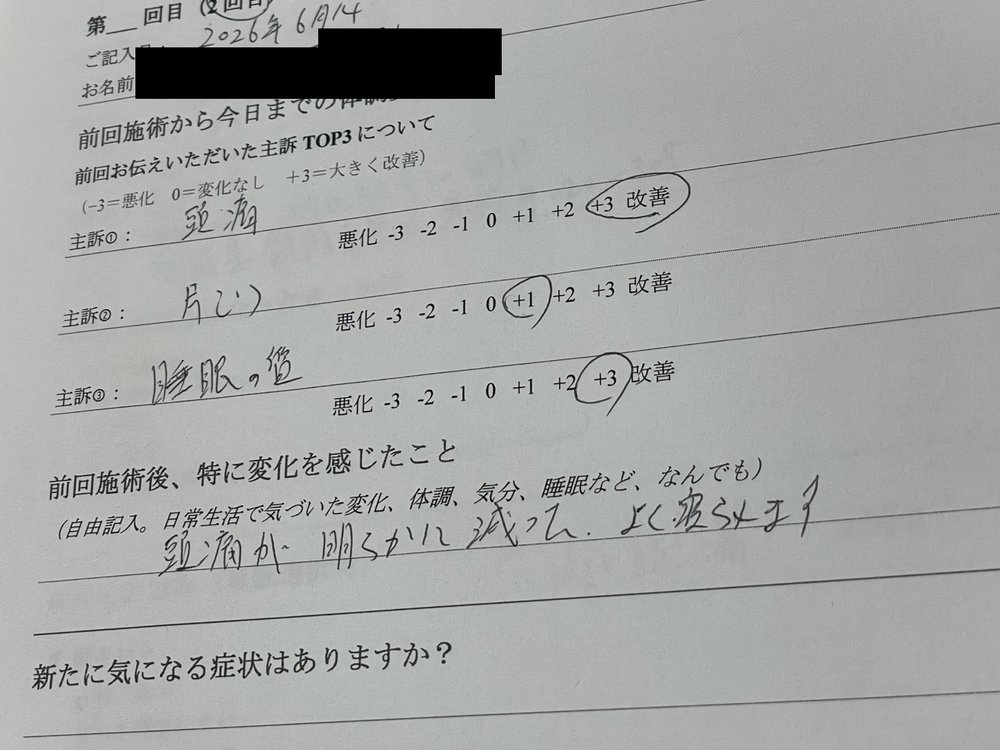 第__回目（2回目）
2026年6月14
ご記入
お名前
前回施術から今日までの体調
前回お伝えいただいた主訴 TOP3 について
（−3＝悪化　0＝変化なし　+3＝大きく改善）
主訴①： 頭痛 悪化 -3 -2 -1 0 +1 +2 +3 改善
主訴②： 片こり 悪化 -3 -2 -1 0 +1 +2 +3 改善
主訴③： 睡眠の質 悪化 -3 -2 -1 0 +1 +2 +3 改善
前回施術後、特に変化を感じたこと
（自由記入。日常生活で気づいた変化、体調、気分、睡眠など、なんでも）
頭痛が明らかに減って、よく寝られます
新たに気になる症状はありますか？